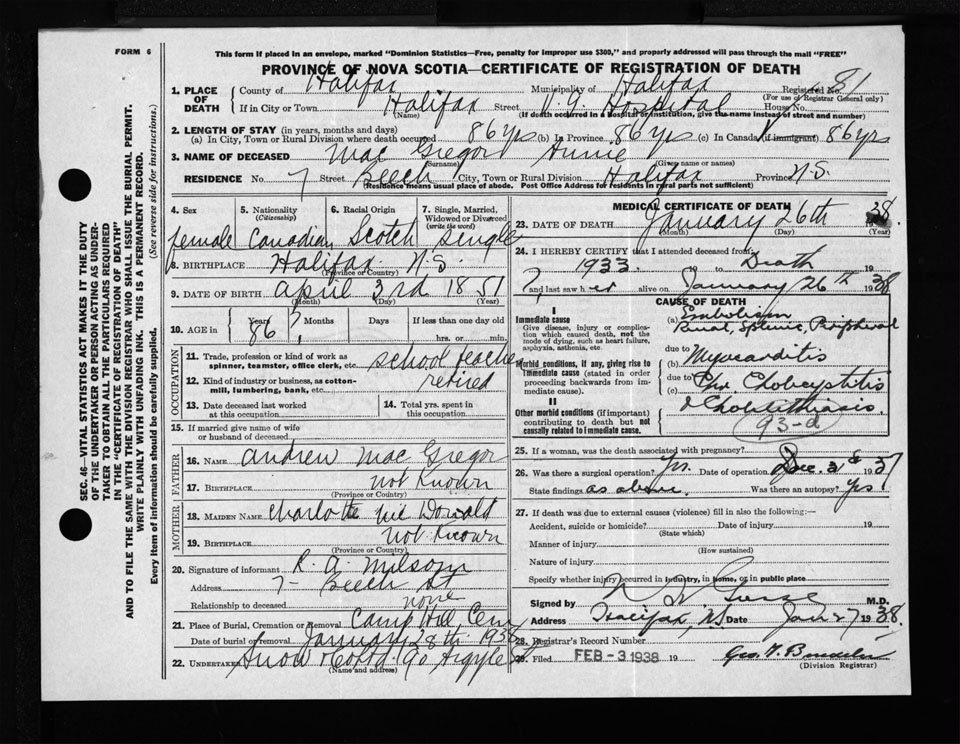 FORM 6
This form if placed in an envelope, marked "Dominion Statistics—Free, penalty for improper use $300," and properly addressed will pass through the mail "FREE"
PROVINCE OF NOVA SCOTIA—CERTIFICATE OF REGISTRATION OF DEATH
SEC. 46—VITAL STATISTICS ACT MAKES IT THE DUTY
OF THE UNDERTAKER OR PERSON ACTING AS UNDER-
TAKER TO OBTAIN ALL THE PARTICULARS REQUIRED
IN THE "CERTIFICATE OF REGISTRATION OF DEATH"
AND TO FILE THE SAME WITH THE DIVISION REGISTRAR WHO SHALL ISSUE THE BURIAL PERMIT.
WRITE PLAINLY WITH UNFADING INK. THIS IS A PERMANENT RECORD.
Every item of information should be carefully supplied. (See reverse side for instructions.)
1. PLACE OF DEATH
County of Halifax Municipality of Halifax Registered No. 81
(For use of Registrar General only)
If in City or Town Halifax Street V.G. Hospital House No.
(Name) (If death occurred in a hospital or institution, give the name instead of street and number)
2. LENGTH OF STAY (in years, months and days)
(a) In City, Town or Rural Division where death occurred 86 yrs (b) In Province 86 yrs (c) In Canada (if immigrant) 86 yrs
3. NAME OF DECEASED Mac Gregor Annie
(Surname) (Given name or names)
RESIDENCE No. 7 Street Beech City, Town or Rural Division Halifax Province N.S.
(Residence means usual place of abode. Post Office Address for residents in rural parts not sufficient)
4. Sex female
5. Nationality (Citizenship) Canadian
6. Racial Origin Scotch
7. Single, Married, Widowed or Divorced (write the word) Single
8. BIRTHPLACE Halifax N.S.
(Province or Country)
9. DATE OF BIRTH April 3rd 1851
(Month) (Day) (Year)
10. AGE in Years 86 Months Days If less than one day old
hrs. or min.
OCCUPATION
11. Trade, profession or kind of work as spinner, teamster, office clerk, etc. school teacher
12. Kind of industry or business, as cotton-mill, lumbering, bank, etc. retired
13. Date deceased last worked at this occupation
14. Total yrs. spent in this occupation
15. If married give name of wife or husband of deceased
FATHER
16. NAME Andrew Mac Gregor
17. BIRTHPLACE not Known
(Province or Country)
MOTHER
18. MAIDEN NAME Charlotte Donald
19. BIRTHPLACE not Known
(Province or Country)
20. Signature of informant R. A. Milsom
Address 7- Beech St
Relationship to deceased none
21. Place of Burial, Cremation or Removal Camp Hill Cem
Date of burial or removal January 28th 1938
22. UNDERTAKER Snow & Co Ltd 90 Argyle St
(Name and address)
MEDICAL CERTIFICATE OF DEATH
23. DATE OF DEATH January 26th 38
(Month) (Day) (Year)
24. I HEREBY CERTIFY that I attended deceased from
1933 19 to Death 19
and last saw her alive on January 26th 1938
CAUSE OF DEATH
I
Immediate cause
Give disease, injury or complication which caused death, not the mode of dying, such as heart failure, asphyxia, asthenia, etc.
(a) Embolism
Renal, Splenic, Peripheral
due to
Morbid conditions, if any, giving rise to immediate cause (stated in order proceeding backwards from immediate cause).
(b) Myocarditis
due to
(c) Chr Cholecystitis
& Cholelithiasis.
II
Other morbid conditions (if important) contributing to death but not causally related to immediate cause.
93-d
25. If a woman, was the death associated with pregnancy?
26. Was there a surgical operation? Yes. Date of operation Dec. 1937
State findings as above. Was there an autopsy? Yes
27. If death was due to external causes (violence) fill in also the following:—
Accident, suicide or homicide? Date of injury 19
(State which)
Manner of injury
(How sustained)
Nature of injury
Specify whether injury occurred in industry, in home, or in public place
Signed by M.D.
Address Halifax, N.S. Date Jan 27 1938.
28. Registrar's Record Number
29. Filed FEB -3 1938 19
(Division Registrar)